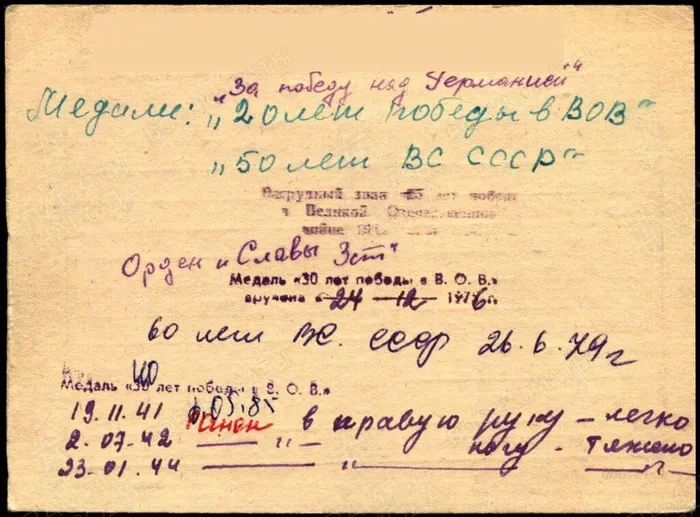 „За победу над Германией"
Медали: „20 лет Победы в ВОВ"
„50 лет ВС СССР"
Нагрудный знак 25 лет победы
в Великой Отечественной
войне
Орден „Славы 3 ст"
Медаль «30 лет победы в В. О. В.»
вручена «24 – 12 1976 г.
60 лет ВС. СССР 26.6.79 г
Медаль «40 лет победы в В. О. В.»
19.11.41 Ранен в правую руку – легко
2.07.42 — „ — ногу – тяжело
23.01.44 — „ — „ —